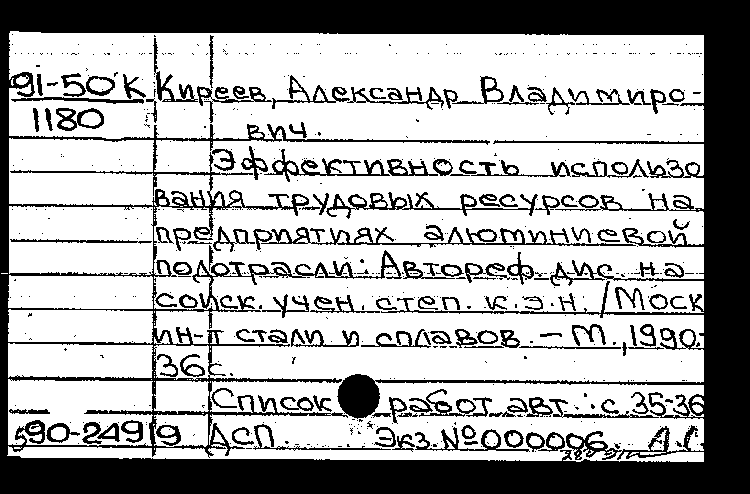 91-50 К Киреев, Александр Владимиро-
1180 вич.
Эффективность использо
вания трудовых ресурсов на
предприятиях алюминиевой
подотрасли: Автореф. дис. на
соиск. учен. степ. к.э.н. /Моск
ин-т стали и сплавов. – М., 1990.-
36с.
Список работ авт.: с. 35-36
590-24919 ДСП. Экз. №000006. А.С.